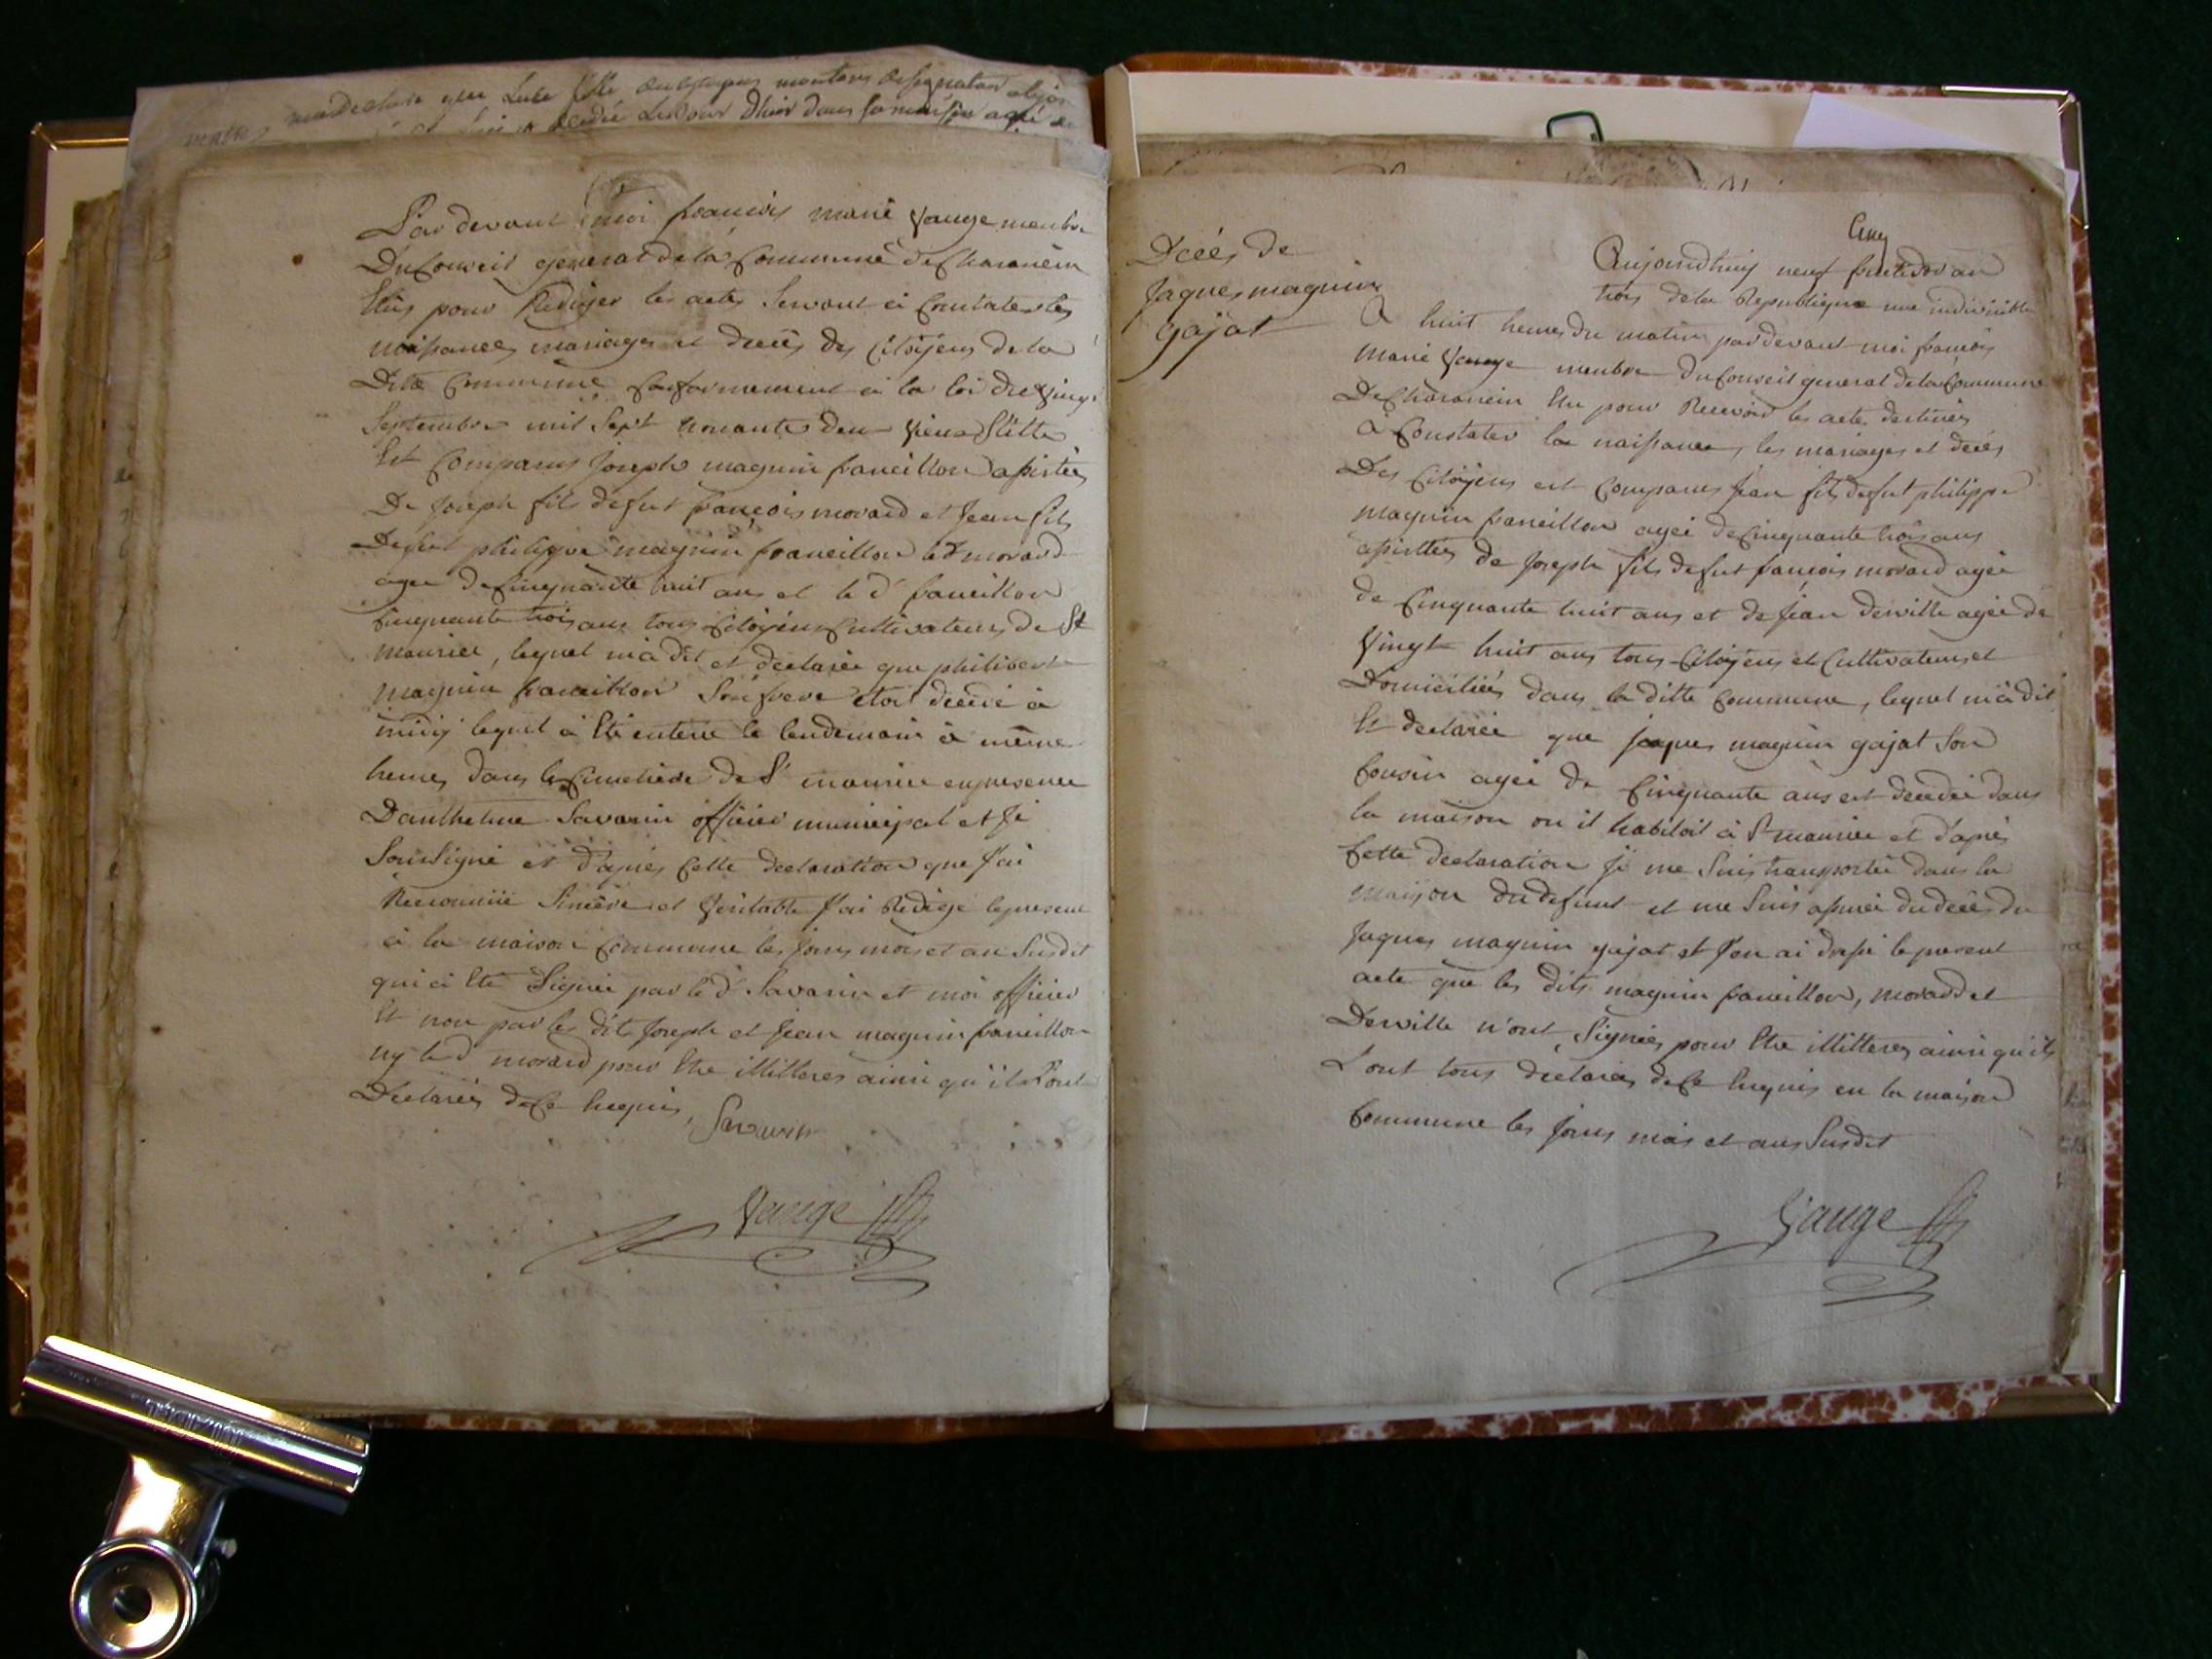 ma declaré que
decedé le Jour dhier dans sa maison agé de
Par devant moi francois marie Vauge membre
Du Conseil general de la Commune de Charancin
Elus pour Rediger les actes Servant à Constater les
naissances mariages et decès des Citoÿens de la
Dite Commune Conformement à la loi du Vingt
Septembre mil Sept nonante deux Vieux Stitte
Est Comparus Joseph magnin franeillon assistés
De Joseph fils de fut françois morard et Jean fils
De fut philippe magnin franeillon led morard
agee de Cinquante huit ans et le d franeillon
Cinquante trois ans tous Citoÿens Cultivateurs de St
maurice, lequel m'a dit et declarée que philibert
magnin franeillon Son frere etoit decédé à
midÿ lequel à Eté enterré le lendemain à même
heures dans le Cimetière de St maurice en presence
Danthelme Savarin officier municipal et Je
Soussigné et d'après Cette declaration que J'ai
Reconnüe Sincère et Veritable J'ai Redigé le present
à la maison Commune les Jours mois et an Susdit
qui à Eté Signée par le d Savarin et moi officier
Et non par les dits Joseph et Jean magnin franeillon
ny le d morard pour Etre illitteres ainsi qu'il l'ont
Declarés de Ce Requis,
Savarin
Vauge
Décés de
Jaques magnin
gajat
Cinq
Aujourdhuÿ neuf fructidor an
trois de la Republique une indivisible
A huit heures du matin par devant moi francois
Marie Vauge membre du Conseil general de la Commune
De Charancin Elu pour Recevoir les actes destinés
a Constater les naissances, les mariages et decés
Des Citoÿens est Comparus Jean fils de fut philippe
magnin franeillon agée de Cinquante trois ans
assistés de Joseph fils de fut francois morard agée
de Cinquante huit ans et de Jean derville agée de
Vingt huit ans tous Citoÿens et Cultivateurs et
Domiciliés dans la ditte Commune, lequel m'a dit
Et declarée que Jaques magnin gajat Son
Cousin agée de Cinquante ans est decedée dans
la maison ou il habitoit à St maurice et d'après
Cette declaration Je me Suis transportée dans la
maison du defunt et me Suis assurée du decès du
Jaques magnin gajat et J'en ai dressé le present
acte que les dits magnin franeillon, morard et
Derville n'ont Signés pour Etre illitteres ainsi qu'ils
L'ont tous declarés de Ce Requis en la maison
Commune les Jours mois et ans Susdit
Vauge